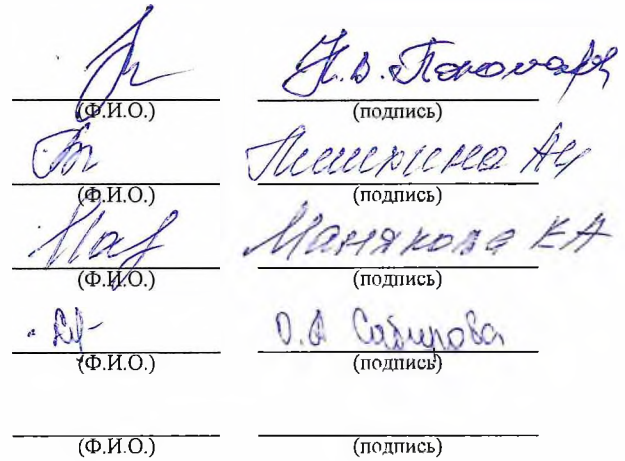 Н.В. Пономарь
(Ф.И.О.) (подпись)
Пишкина АИ
(Ф.И.О.) (подпись)
Манякова КА
(Ф.И.О.) (подпись)
О.А Сабирова
(Ф.И.О.) (подпись)
(Ф.И.О.) (подпись)